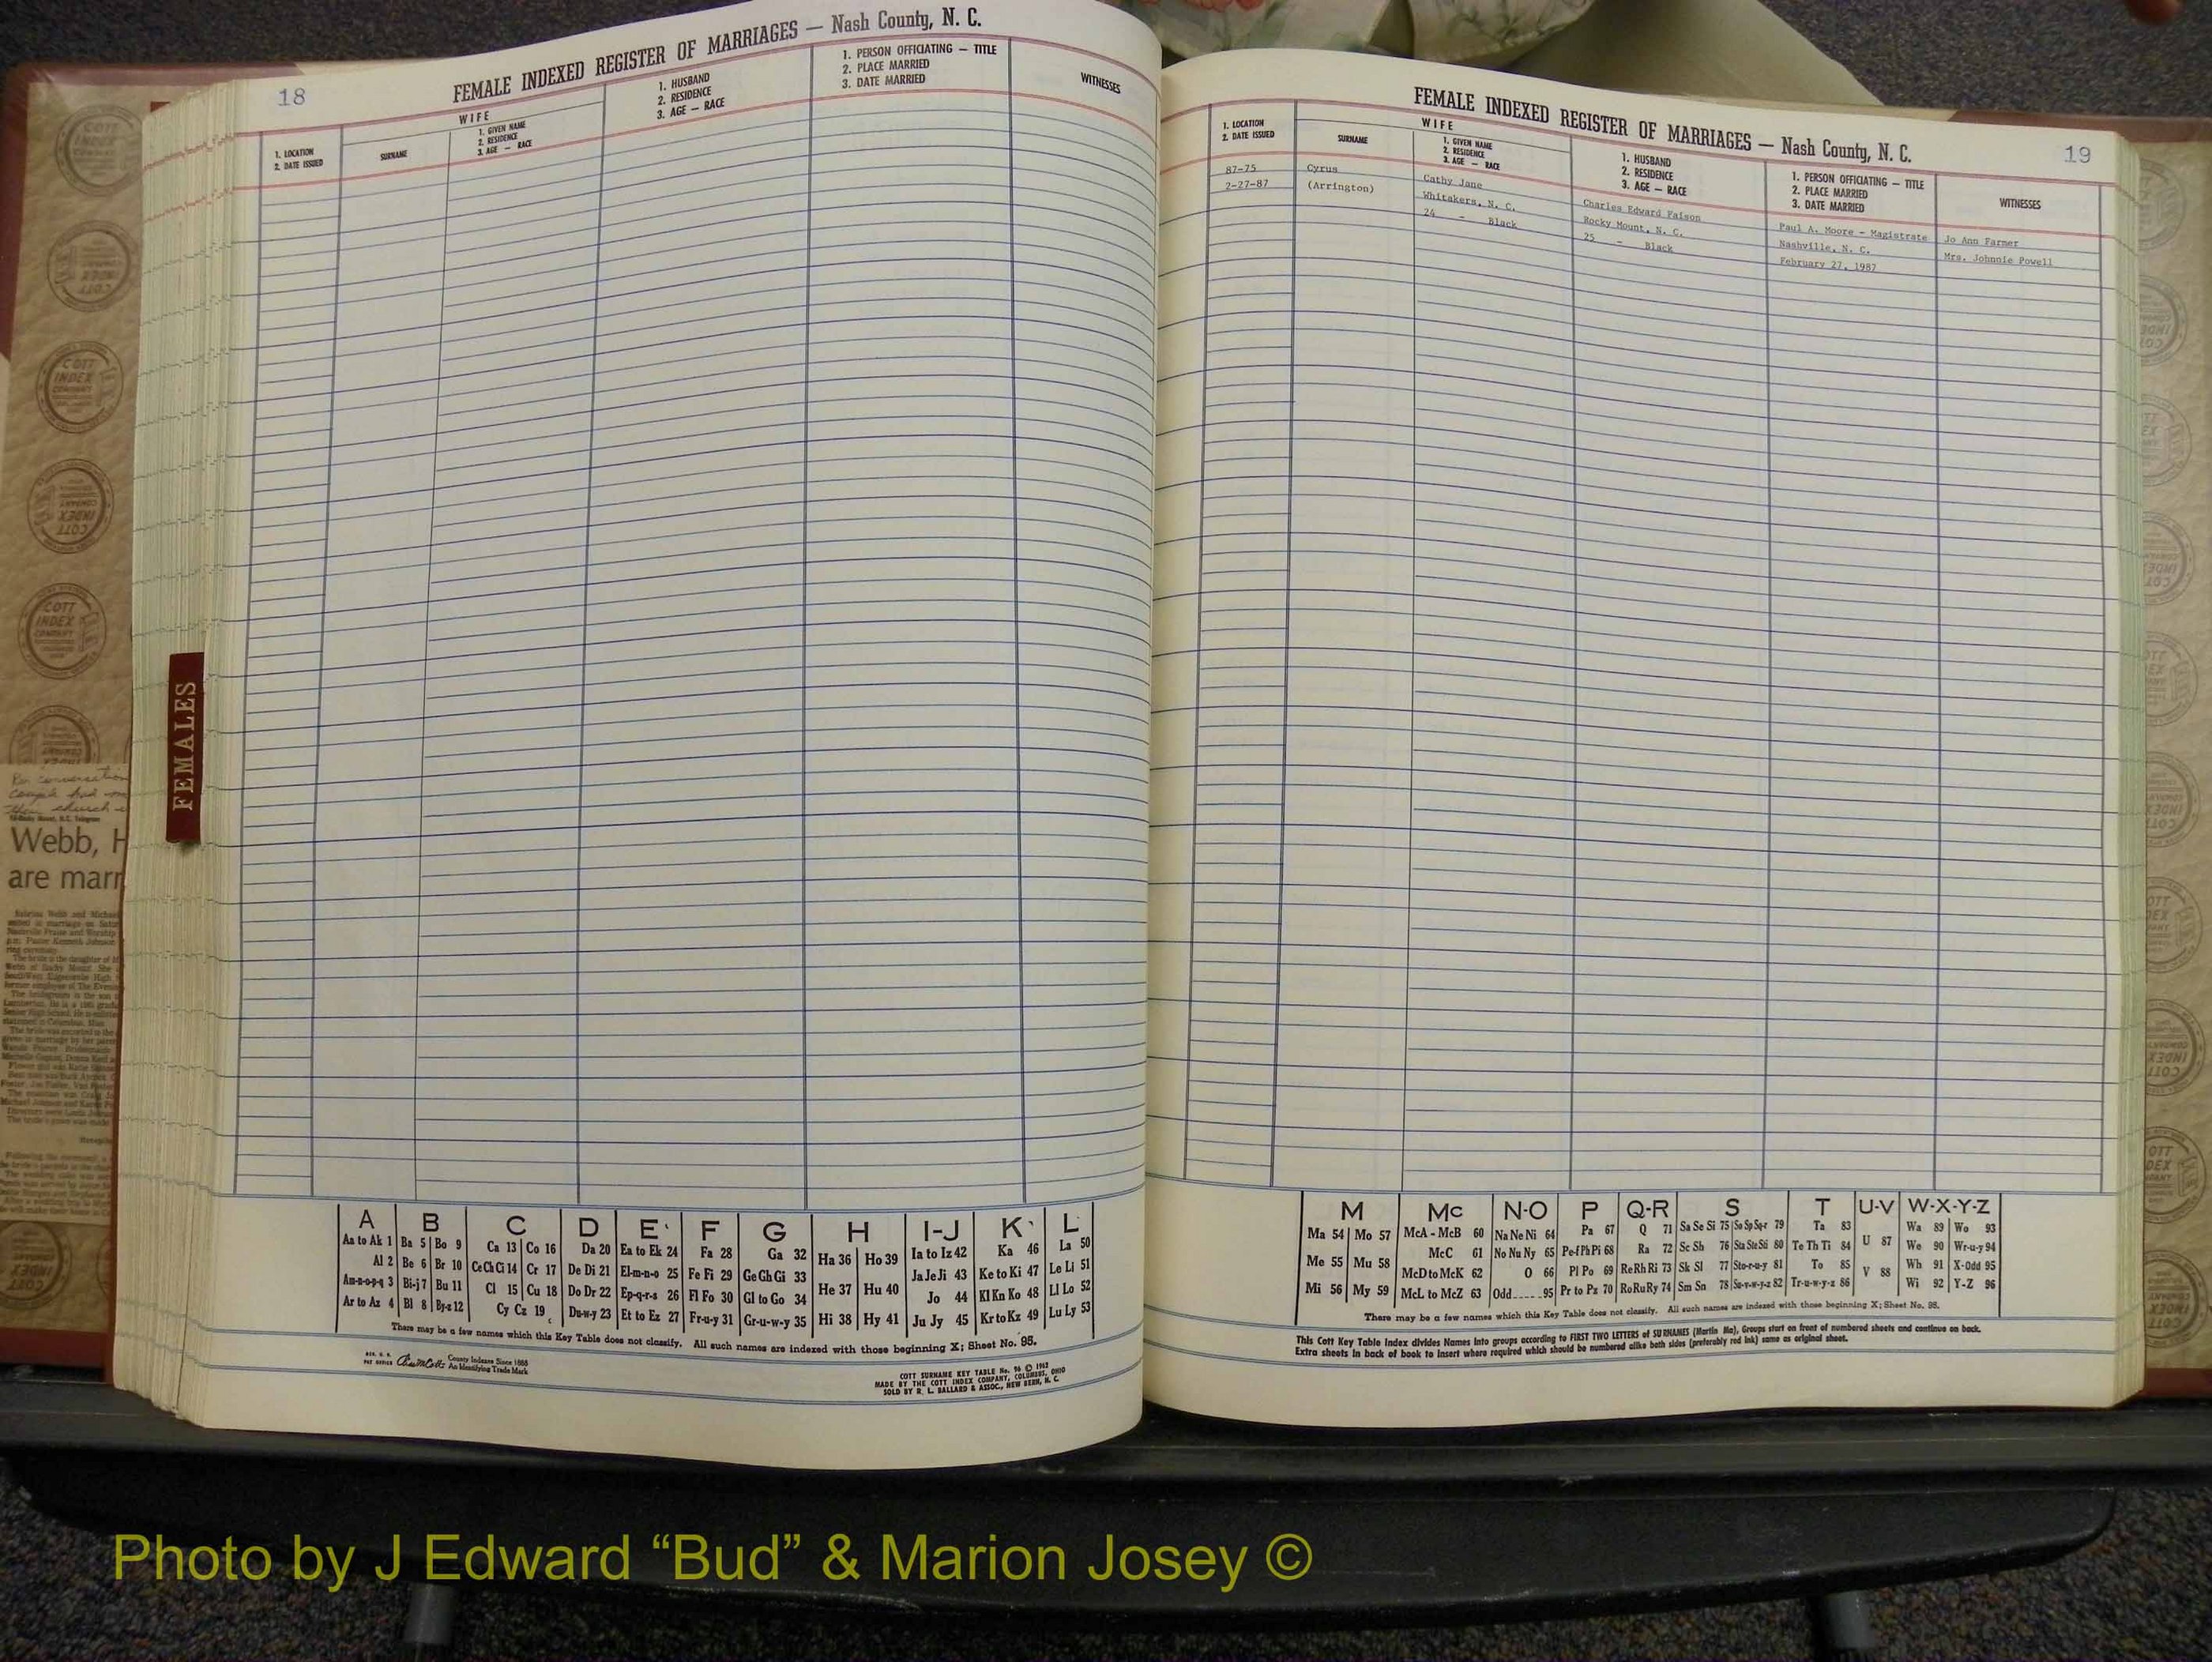 18
FEMALE INDEXED REGISTER OF MARRIAGES — Nash County, N. C.
1. LOCATION
2. DATE ISSUED
WIFE
SURNAME
1. GIVEN NAME
2. RESIDENCE
3. AGE — RACE
1. HUSBAND
2. RESIDENCE
3. AGE — RACE
1. PERSON OFFICIATING — TITLE
2. PLACE MARRIED
3. DATE MARRIED
WITNESSES
FEMALES
Webb, H
are marr
A B C D E F G H I-J K L
Aa to Ak 1 Ba 5 Bo 9 Ca 13 Co 16 Da 20 Ea to Ek 24 Fa 28 Ga 32 Ha 36 Ho 39 Ia to Iz 42 Ka 46 La 50
Al 2 Be 6 Br 10 Ce Ch Ci 14 Cr 17 De Di 21 El-m-n-o 25 Fe Fi 29 Ge Gh Gi 33 Ja Je Ji 43 Ke to Ki 47 Le Li 51
Am-n-o-p-q 3 Bi-j 7 Bu 11 Cl 15 Cu 18 Do Dr 22 Ep-q-r-s 26 Fl Fo 30 Gl to Go 34 He 37 Hu 40 Jo 44 Kl Kn Ko 48 Ll Lo 52
Ar to Az 4 Bl 8 By-z 12 Cy Cz 19 Du-w-y 23 Et to Ez 27 Fr-u-y 31 Gr-u-w-y 35 Hi 38 Hy 41 Ju Jy 45 Kr to Kz 49 Lu Ly 53
There may be a few names which this Key Table does not classify. All such names are indexed with those beginning X; Sheet No. 95.
County Indexes Since 1888
An Identifying Trade Mark
COTT SURNAME KEY TABLE No. 96 © 1962
MADE BY THE COTT INDEX COMPANY, COLUMBUS, OHIO
SOLD BY R. L. BALLARD & ASSOC., NEW BERN, N. C.
FEMALE INDEXED REGISTER OF MARRIAGES — Nash County, N. C.
19
1. LOCATION
2. DATE ISSUED
WIFE
SURNAME
1. GIVEN NAME
2. RESIDENCE
3. AGE — RACE
1. HUSBAND
2. RESIDENCE
3. AGE — RACE
1. PERSON OFFICIATING — TITLE
2. PLACE MARRIED
3. DATE MARRIED
WITNESSES
87-75 Cyrus Cathy Jane Charles Edward Faison Paul A. Moore - Magistrate Jo Ann Farmer
2-27-87 (Arrington) Whitakers, N. C. Rocky Mount, N. C. Nashville, N. C. Mrs. Johnnie Powell
24 - Black 25 - Black February 27, 1987
M Mc N-O P Q-R S T U-V W-X-Y-Z
Ma 54 Mo 57 McA - McB 60 Na Ne Ni 64 Pa 67 Q 71 Sa Se Si 75 So Sp Sq-r 79 Ta 83 U 87 Wa 89 Wo 93
Me 55 Mu 58 McC 61 No Nu Ny 65 Pe-f Ph Pi 68 Ra 72 Sc Sh 76 Sta Ste Sti 80 Te Th Ti 84 We 90 Wr-u-y 94
McD to McK 62 O 66 Pl Po 69 Re Rh Ri 73 Sk Sl 77 Sto-r-u-y 81 To 85 V 88 Wh 91 X-Odd 95
Mi 56 My 59 McL to McZ 63 Odd 95 Pr to Pz 70 Ro Ru Ry 74 Sm Sn 78 Su-v-w-y-z 82 Tr-u-w-y-z 86 Wi 92 Y-Z 96
There may be a few names which this Key Table does not classify. All such names are indexed with those beginning X; Sheet No. 95.
This Cott Key Table Index divides Names into groups according to FIRST TWO LETTERS of SURNAMES (Martin Ma), Groups start on front of numbered sheets and continue on back.
Extra sheets in back of book to insert where required which should be numbered alike both sides (preferably red ink) same as original sheet.
Photo by J Edward “Bud” & Marion Josey ©